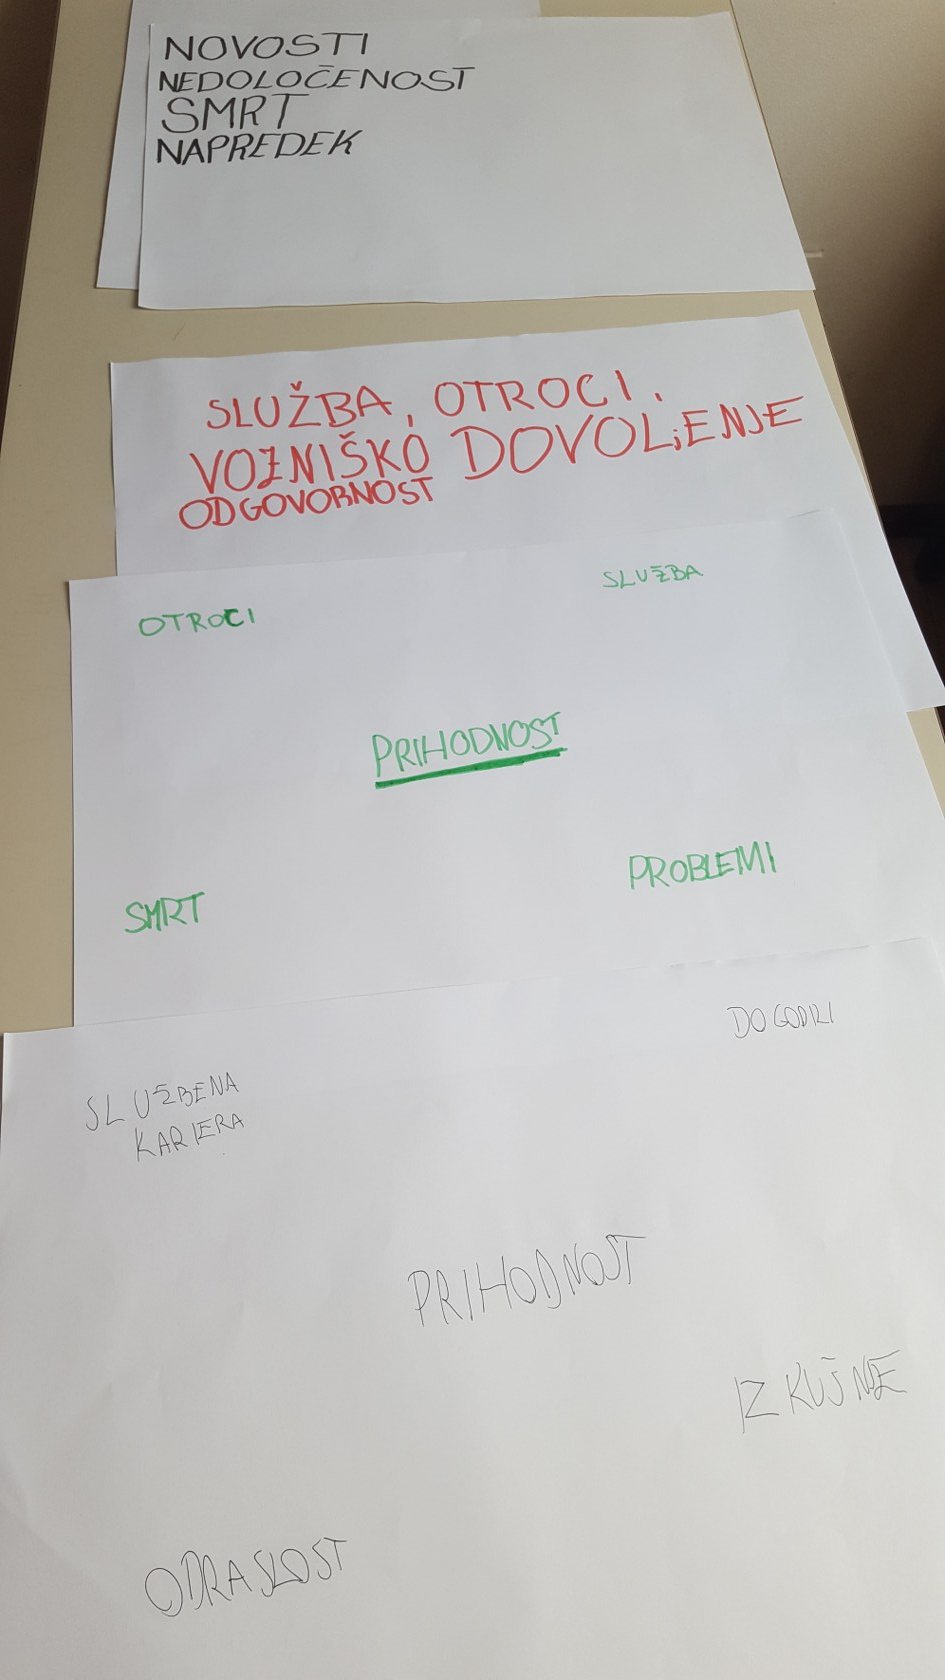 NOVOSTI
NEDOLOČENOST
SMRT
NAPREDEK
SLUŽBA, OTROCI,
VOZNIŠKO DOVOLJENJE
ODGOVORNOST
OTROCI
SLUŽBA
PRIHODNOST
SMRT
PROBLEMI
SLUŽBENA
KARIERA
DOGODKI
PRIHODNOST
IZKUŠNJE
ODRASLOST